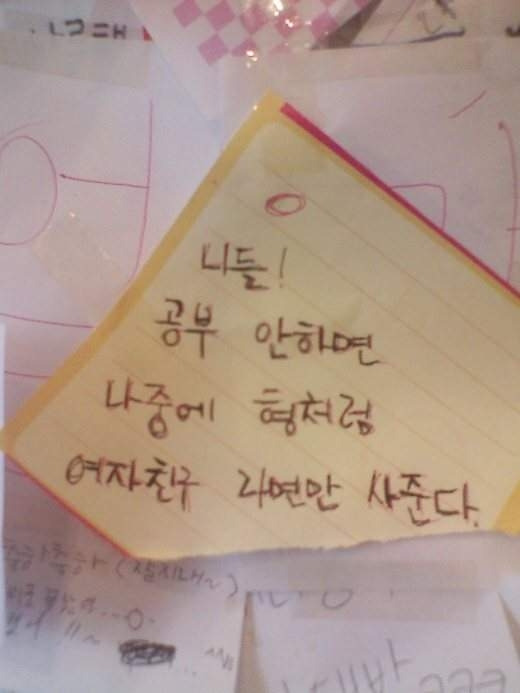 니들!
공부 안하면
나중에 형처럼
여자친구 라면만 사준다.
(잘지내~)